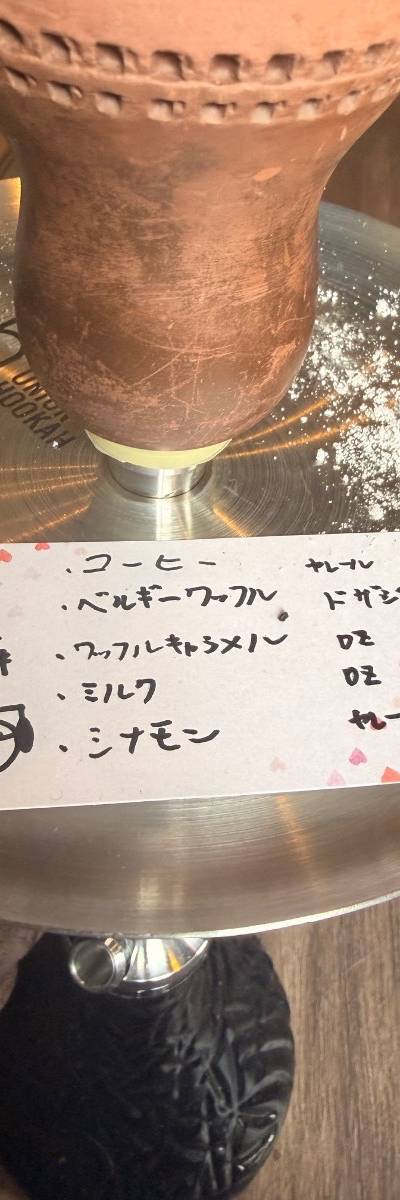 UNION
HOOKAH
・コーヒー ヤレール
・ベルギーワッフル ドザジ
・ワッフルキャラメル DZ
・ミルク DZ
・シナモン ヤレー